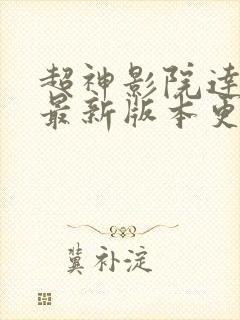 超神影院达
最新版本更
冀补淀